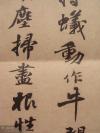 蟻動作牛觀
塵掃盡根性